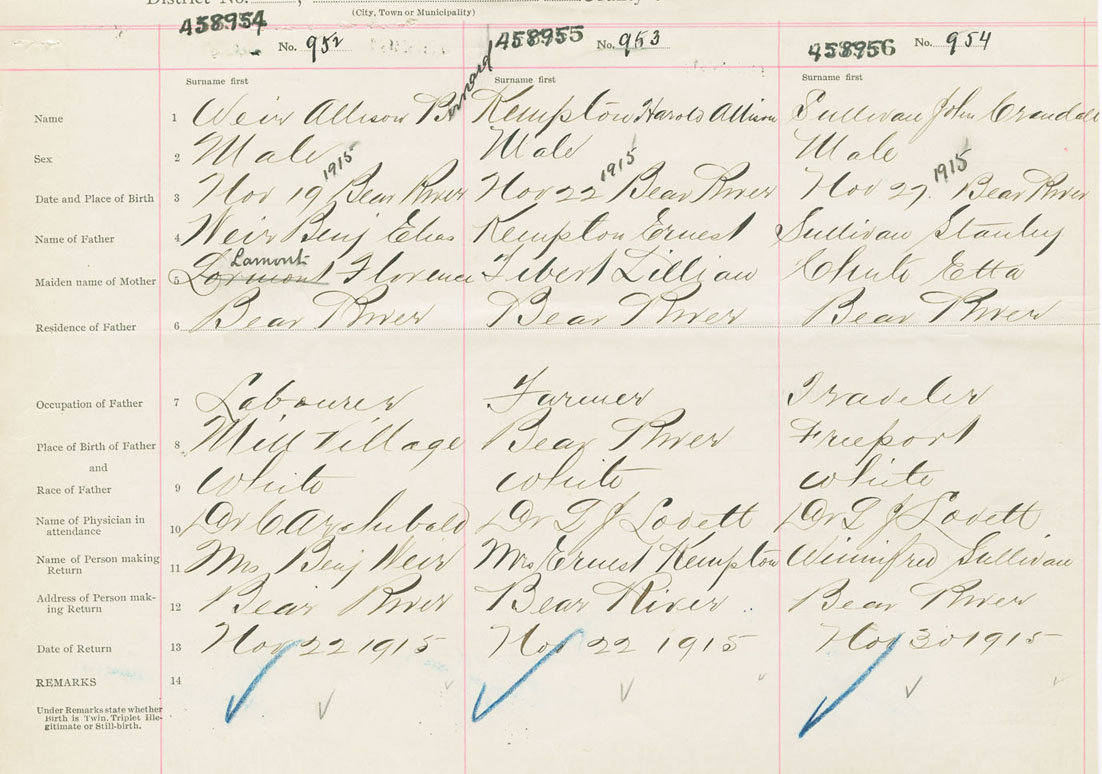 District No.
(City, Town or Municipality)
458954 No. 952 458955 No. 953 458956 No. 954
Surname first Surname first Surname first
Name 1 Weir Allison Bernard Kempton Harold Allison Sullivan John Crandall
Sex 2 Male Male Male
1915 1915 1915
Date and Place of Birth 3 Nov 19 Bear River Nov 22 Bear River Nov 27. Bear River
Name of Father 4 Weir Benj Elias Kempton Ernest Sullivan Stanley
Lamont
Maiden name of Mother 5 Lormont Florence Tibert Lillian Chute Etta
Residence of Father 6 Bear River Bear River Bear River
Occupation of Father 7 Labourer Farmer Traveler
Place of Birth of Father 8 Mill Village Bear River Freeport
and
Race of Father 9 White White White
Name of Physician in
attendance 10 Dr C Archibald Dr L J Lovett Dr L J Lovett
Name of Person making
Return 11 Mrs Benj Weir Mrs Ernest Kempton Winnifred Sullivan
Address of Person mak-
ing Return 12 Bear River Bear River .. Bear River
Date of Return 13 Nov 22 1915 Nov 22 1915 Nov 30 1915
REMARKS 14
Under Remarks state whether
Birth is Twin, Triplet Ille-
gitimate or Still-birth.